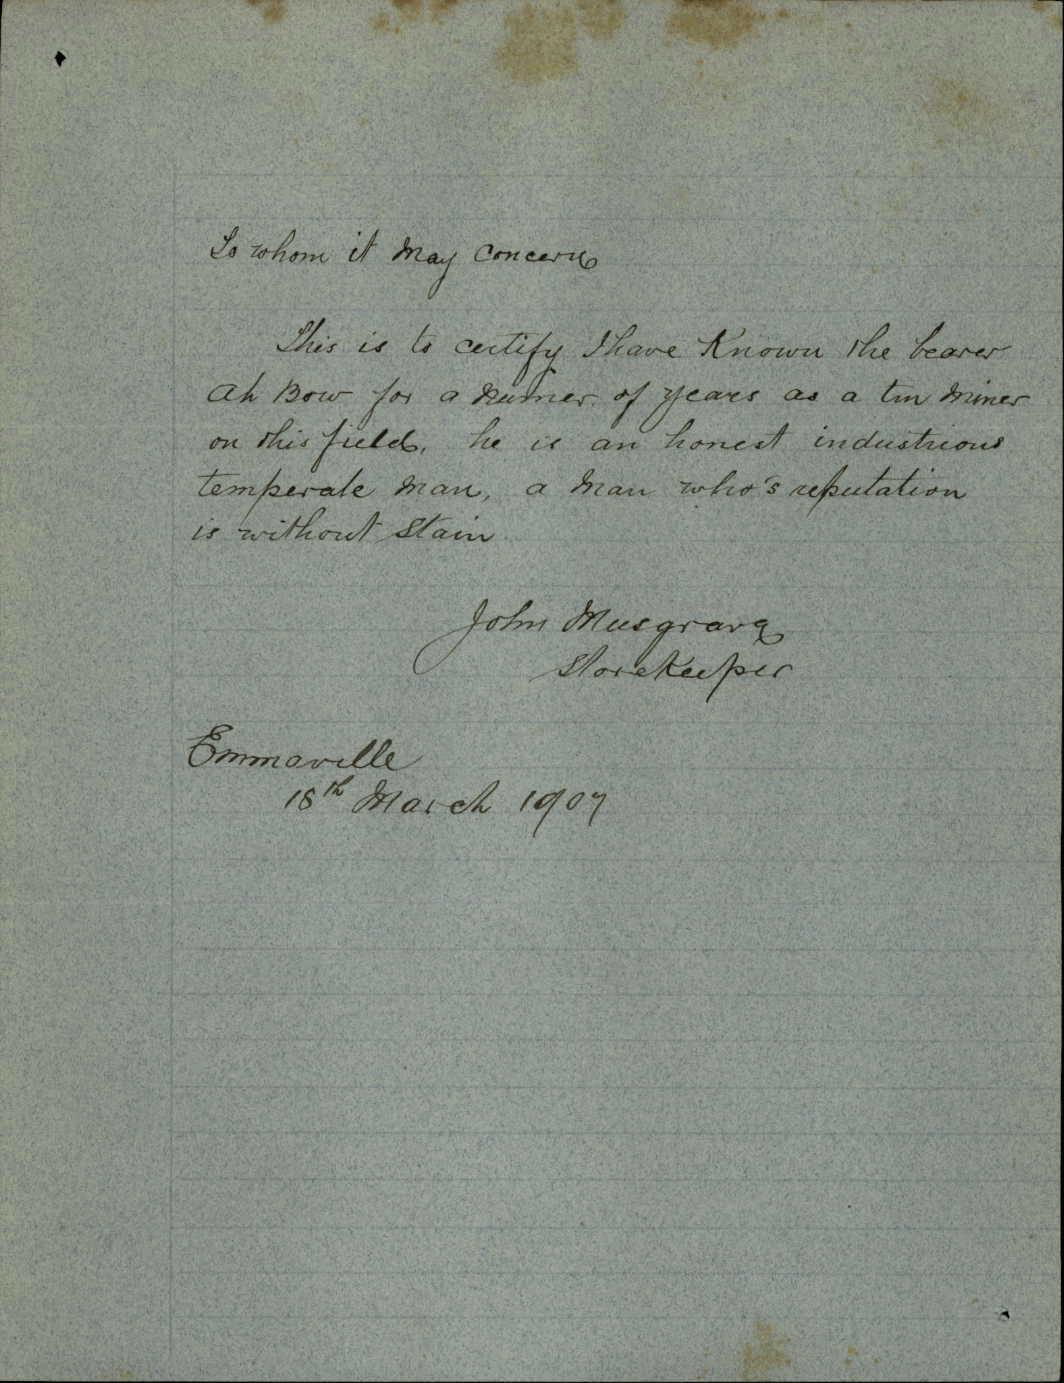 To whom it May Concern
This is to certify I have Known the bearer
Ah Bow for a Numer of years as a tin Miner
on this field, he is an honest industrious
temperate Man, a Man who's reputation
is without Stain
John Musgrave
StoreKeeper
Emmaville
18th March 1907